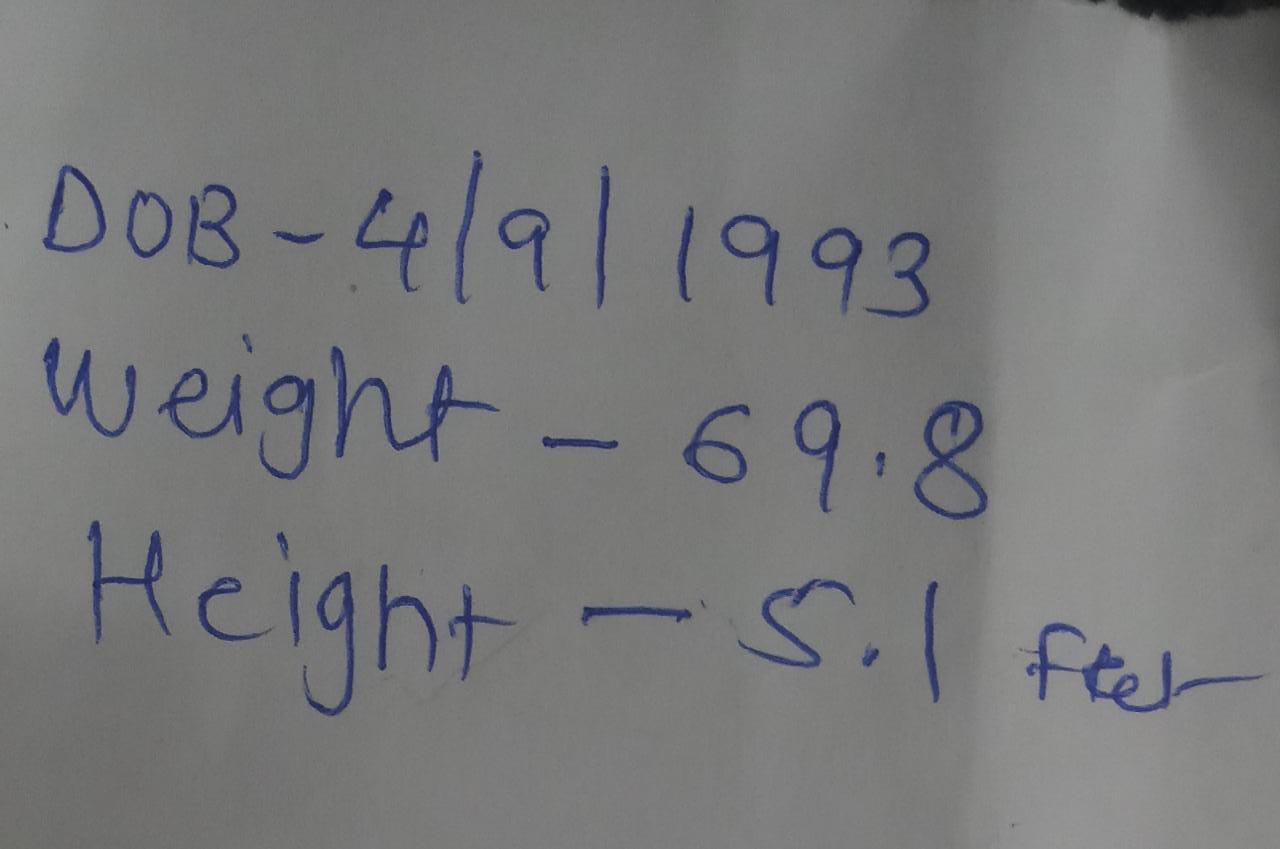 DOB - 4/9/1993
Weight - 69.8
Height - 5.1 feet